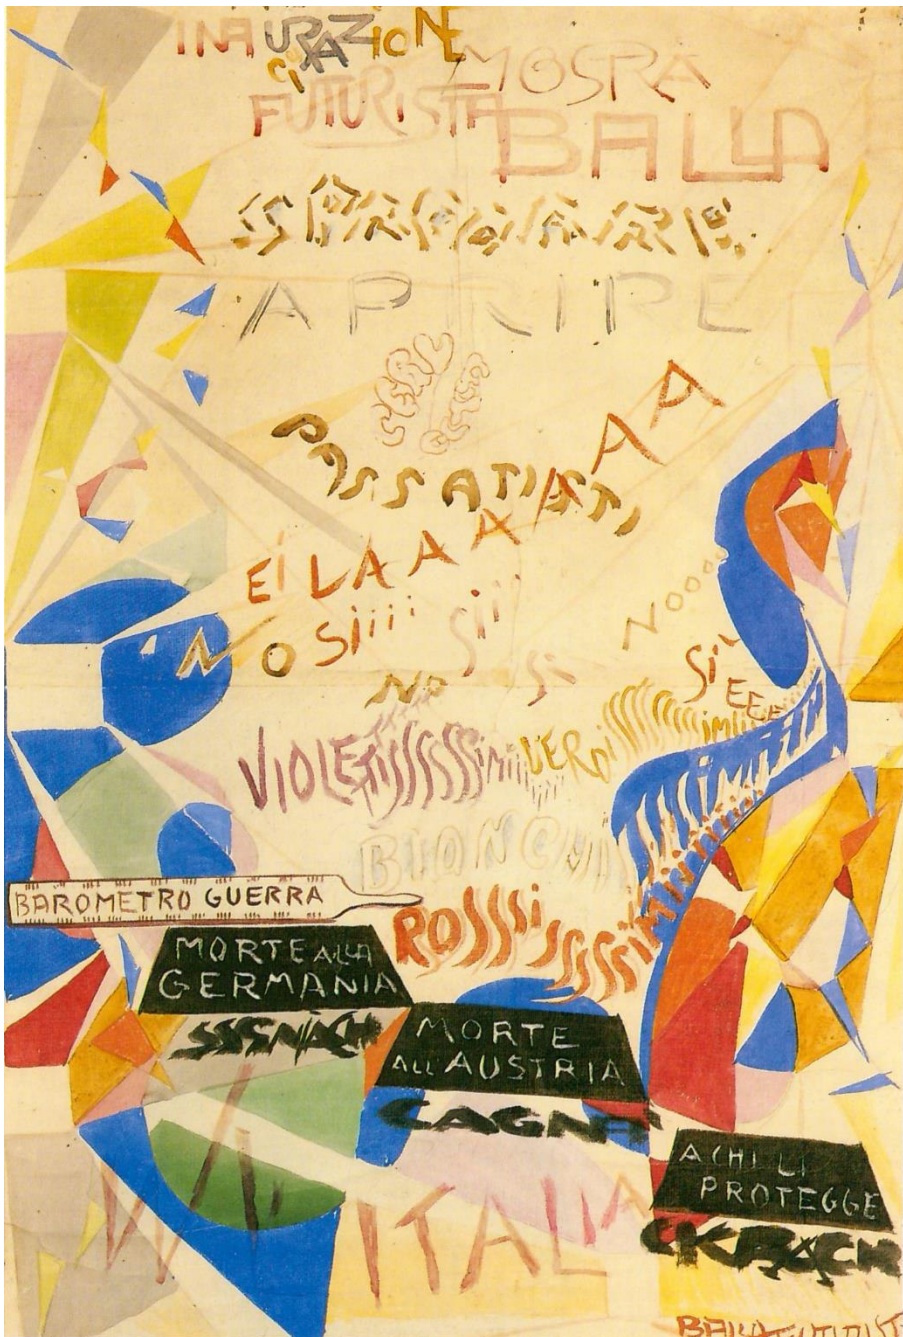 INAUGURAZIONE
MOSTRA
FUTURISTA
BALLA
APRIRE
PASSATISTI
EiLAAAAAAA
NO Siiiii Siii Si NOOO
NO SiEEEE
VIOLETTiSSSSSiMi VERDiSSSSSSiMiiii
BIANCHI
ROSSSSiSSSSSiMi
BAROMETRO GUERRA
MORTE ALLA
GERMANIA
SSSGNACH
MORTE
ALL'AUSTRIA
CAGNA
A CHI LI
PROTEGGE
CKRACK
W ITALIA
BALLA FUTURISTA